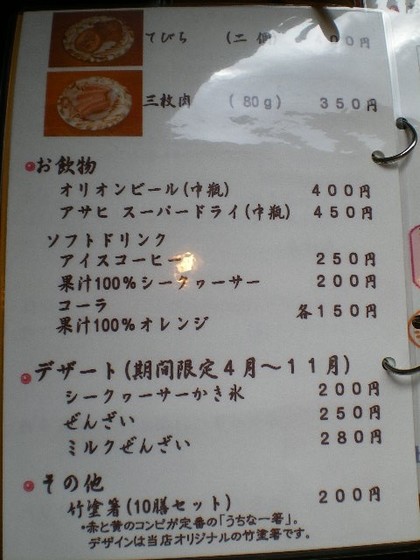 てびち (二個) 00円
三枚肉 (80g) 350円
お飲物
オリオンビール(中瓶) 400円
アサヒ スーパードライ(中瓶) 450円
ソフトドリンク
アイスコーヒー 250円
果汁100%シークヮーサー 200円
コーラ
果汁100%オレンジ 各150円
デザート(期間限定4月～11月)
シークヮーサーかき氷 200円
ぜんざい 250円
ミルクぜんざい 280円
その他
竹塗箸(10膳セット) 200円
・赤と黄のコンビが定番の「うちなー箸」。
デザインは当店オリジナルの竹塗箸です。